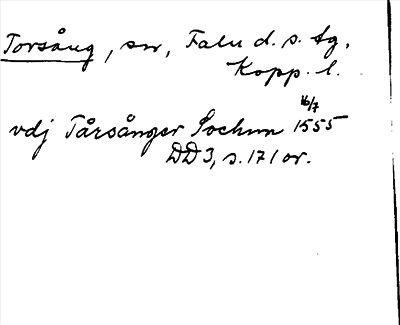 Torsång, sn, Falu d. s. tg,
Kopp. l.
16/7
vdj Tårsånger Sochnn 1555
DD3, s. 171 or.